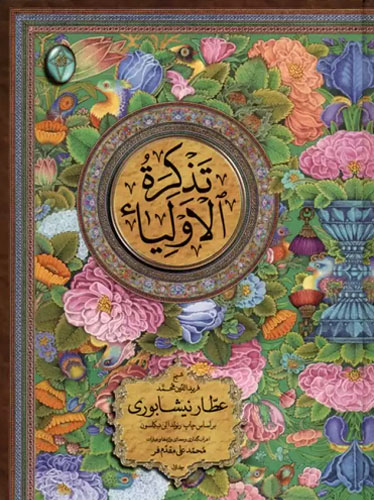 تذكرة
الأولياء
شيخ
فريدالدين محمد
عطار نيشابورى
بر اساس چاپ رينولد الن نيكلسون
محمد على مقدم فر